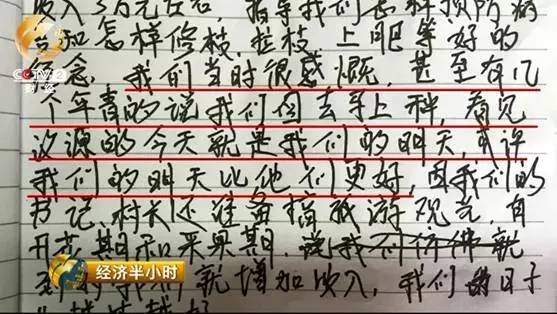 收入3万元左右，指导我们怎样预防病
害和怎样修枝，拉枝，上肥等好的
信念，我们当时很感慨，甚至有几
个年青的说我们回去马上种，看见
汶源的今天就是我们的明天，或许
我们的明天比他们更好，因我们的
书记、村长还准备搞旅游观光，自
开花期和采果期，
就增加收入，我们的日子
CCTV2
财经
经济半小时